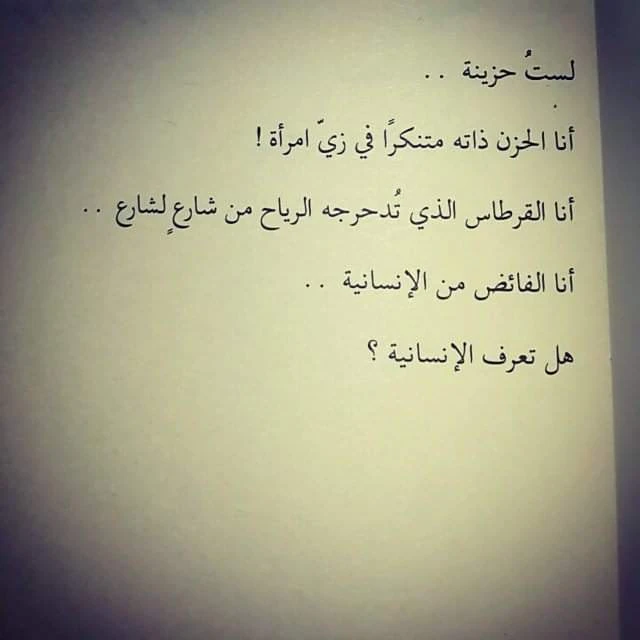 لستُ حزينة ..
أنا الحزن ذاته متنكرًا في زيّ امرأة !
أنا القرطاس الذي تُدحرجه الرياح من شارعٍ لشارع ..
أنا الفائض من الإنسانية ..
هل تعرف الإنسانية ؟